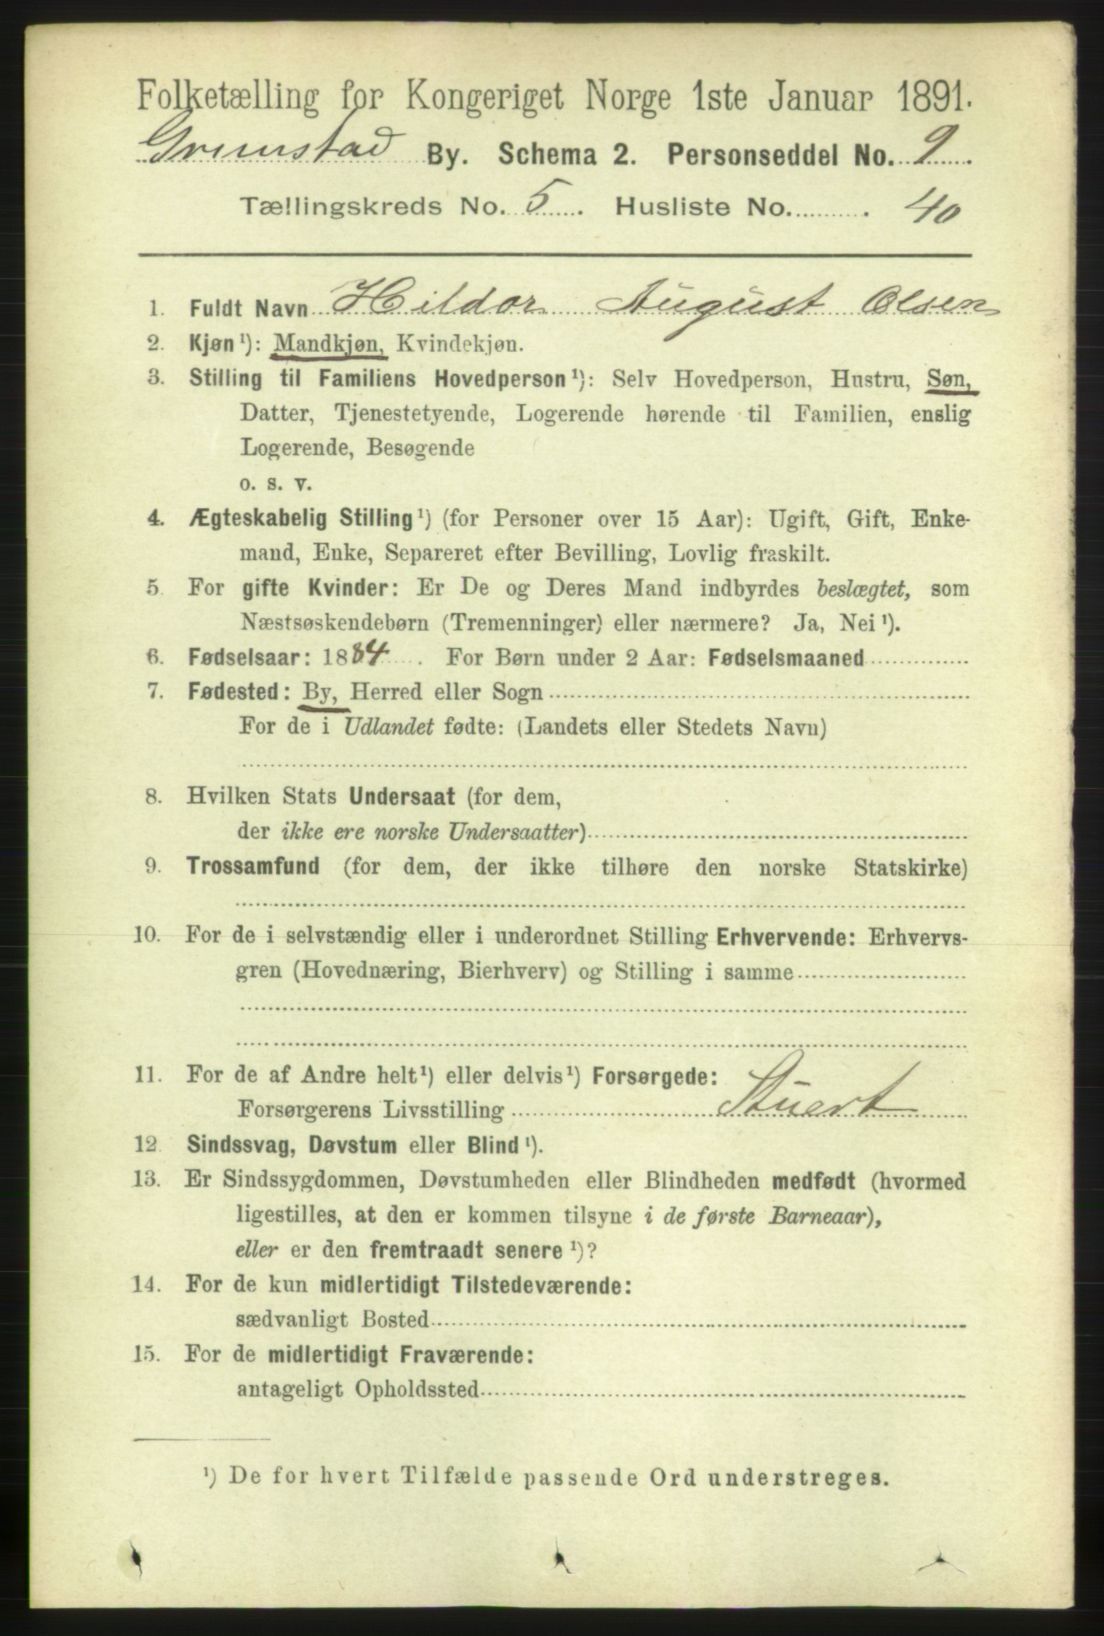 Folketælling for Kongeriget Norge 1ste Januar 1891.
Grimstad By. Schema 2. Personseddel No. 9.
Tællingskreds No. 5. Husliste No. 40
1. Fuldt Navn Hildor August Olsen
2. Kjøn¹): Mandkjøn, Kvindekjøn.
3. Stilling til Familiens Hovedperson¹): Selv Hovedperson, Hustru, Søn,
Datter, Tjenestetyende, Logerende hørende til Familien, enslig
Logerende, Besøgende
o. s. v.
4. Ægteskabelig Stilling¹) (for Personer over 15 Aar): Ugift, Gift, Enke-
mand, Enke, Separeret efter Bevilling, Lovlig fraskilt.
5. For gifte Kvinder: Er De og Deres Mand indbyrdes beslægtet, som
Næstsøskendebørn (Tremenninger) eller nærmere? Ja, Nei¹).
6. Fødselsaar: 1884. For Børn under 2 Aar: Fødselsmaaned
7. Fødested: By, Herred eller Sogn
For de i Udlandet fødte: (Landets eller Stedets Navn)
8. Hvilken Stats Undersaat (for dem,
der ikke ere norske Undersaatter)
9. Trossamfund (for dem, der ikke tilhøre den norske Statskirke)
10. For de i selvstændig eller i underordnet Stilling Erhvervende: Erhvervs-
gren (Hovednæring, Bierhverv) og Stilling i samme
11. For de af Andre helt¹) eller delvis¹) Forsørgede:
Forsørgerens Livsstilling Stuert
12. Sindssvag, Døvstum eller Blind¹).
13. Er Sindssygdommen, Døvstumheden eller Blindheden medfødt (hvormed
ligestilles, at den er kommen tilsyne i de første Barneaar),
eller er den fremtraadt senere¹)?
14. For de kun midlertidigt Tilstedeværende:
sædvanligt Bosted
15. For de midlertidigt Fraværende:
antageligt Opholdssted
¹) De for hvert Tilfælde passende Ord understreges.